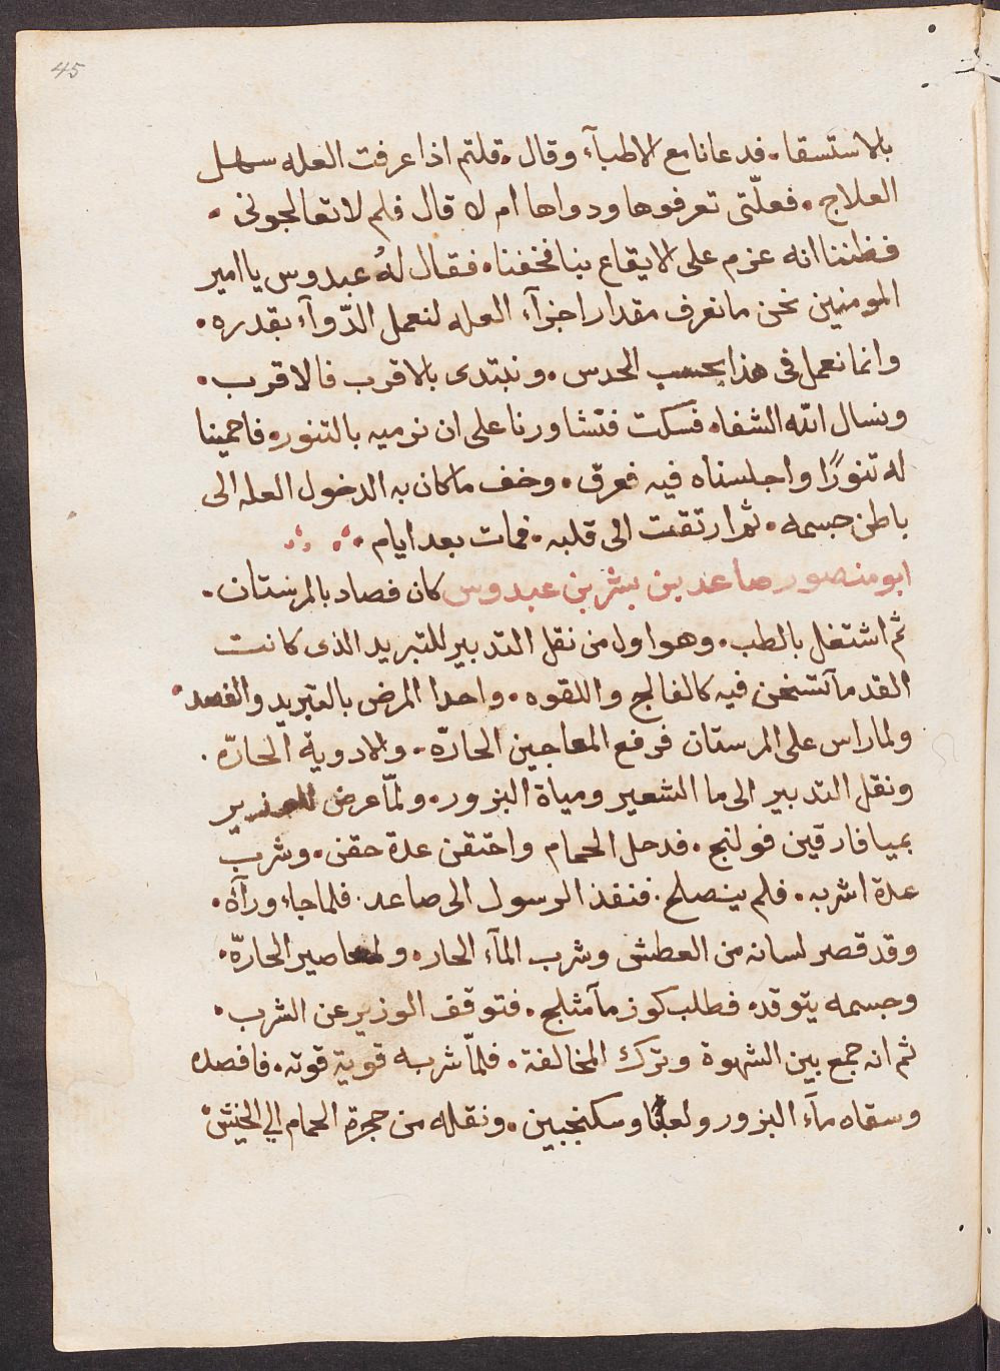 45
بالاستسقا. فدعانا مع الاطبآء وقال. قلتم اذا عرفت العله سهل
العلاج. فعلّتى تعرفوها ودواها ام لا قال فلم لا تعالجونى.
فظننا انه عزم على الايقاع بنا فخفنا. فقال لهُ عبدوس يا امير
المومنين نحن ما نعرف مقدار اجزآء العله لنعمل الدّوآء بقدره.
وانما نعمل فى هذا بحسب الحدس. ونبتدى بالاقرب فالاقرب.
ونسال الله الشفاء فسكت فتشاورنا على ان نرميه بالتنور. فاحمينا
له تنورًا واجلسناه فيه فعرق. وخف ما كان به الدخول العله الى
باطن جسمه. ثم ارتقت الى قلبه. فمات بعد ايام.
ابو منصور صاعد بن بشر بن عبدوس كان فصاد بالمرستان.
ثم اشتغل بالطب. وهو اول من نقل التدبير للتبريد الذى كانت
القدمآ تسخن فيه كالفالج واللقوه. واحدا المرض بالتبريد والفصد.
ولما راس على المرستان فرفع المعاجين الحارّة. والادوية الحارّه.
ونقل التدبير الى ما الشعير ومياة البزور. ولمّا عرض للوزير
بميافارقين قولنج. فدحل الحمام واحتقن عدة حقن. وشرب
عدة اشربه. فلم ينصلح. فنفذ الرسول الى صاعد. فلما جاء ورآه.
وقد قصر لسانه من العطش وشرب المآء الحار. والمعاصير الحارّة.
وجسمه يتوقد. فطلب كوز مآ مثلج. فتوقف الوزير عن الشرب.
ثم انه جمع بين الشهوة وترك المخالفة. فلمّا شربه قويت قوته. فافصده
وسقاه مآء البزور ولعابًا وسكنجبين. ونقله من حجرة الحمام الى الخيش